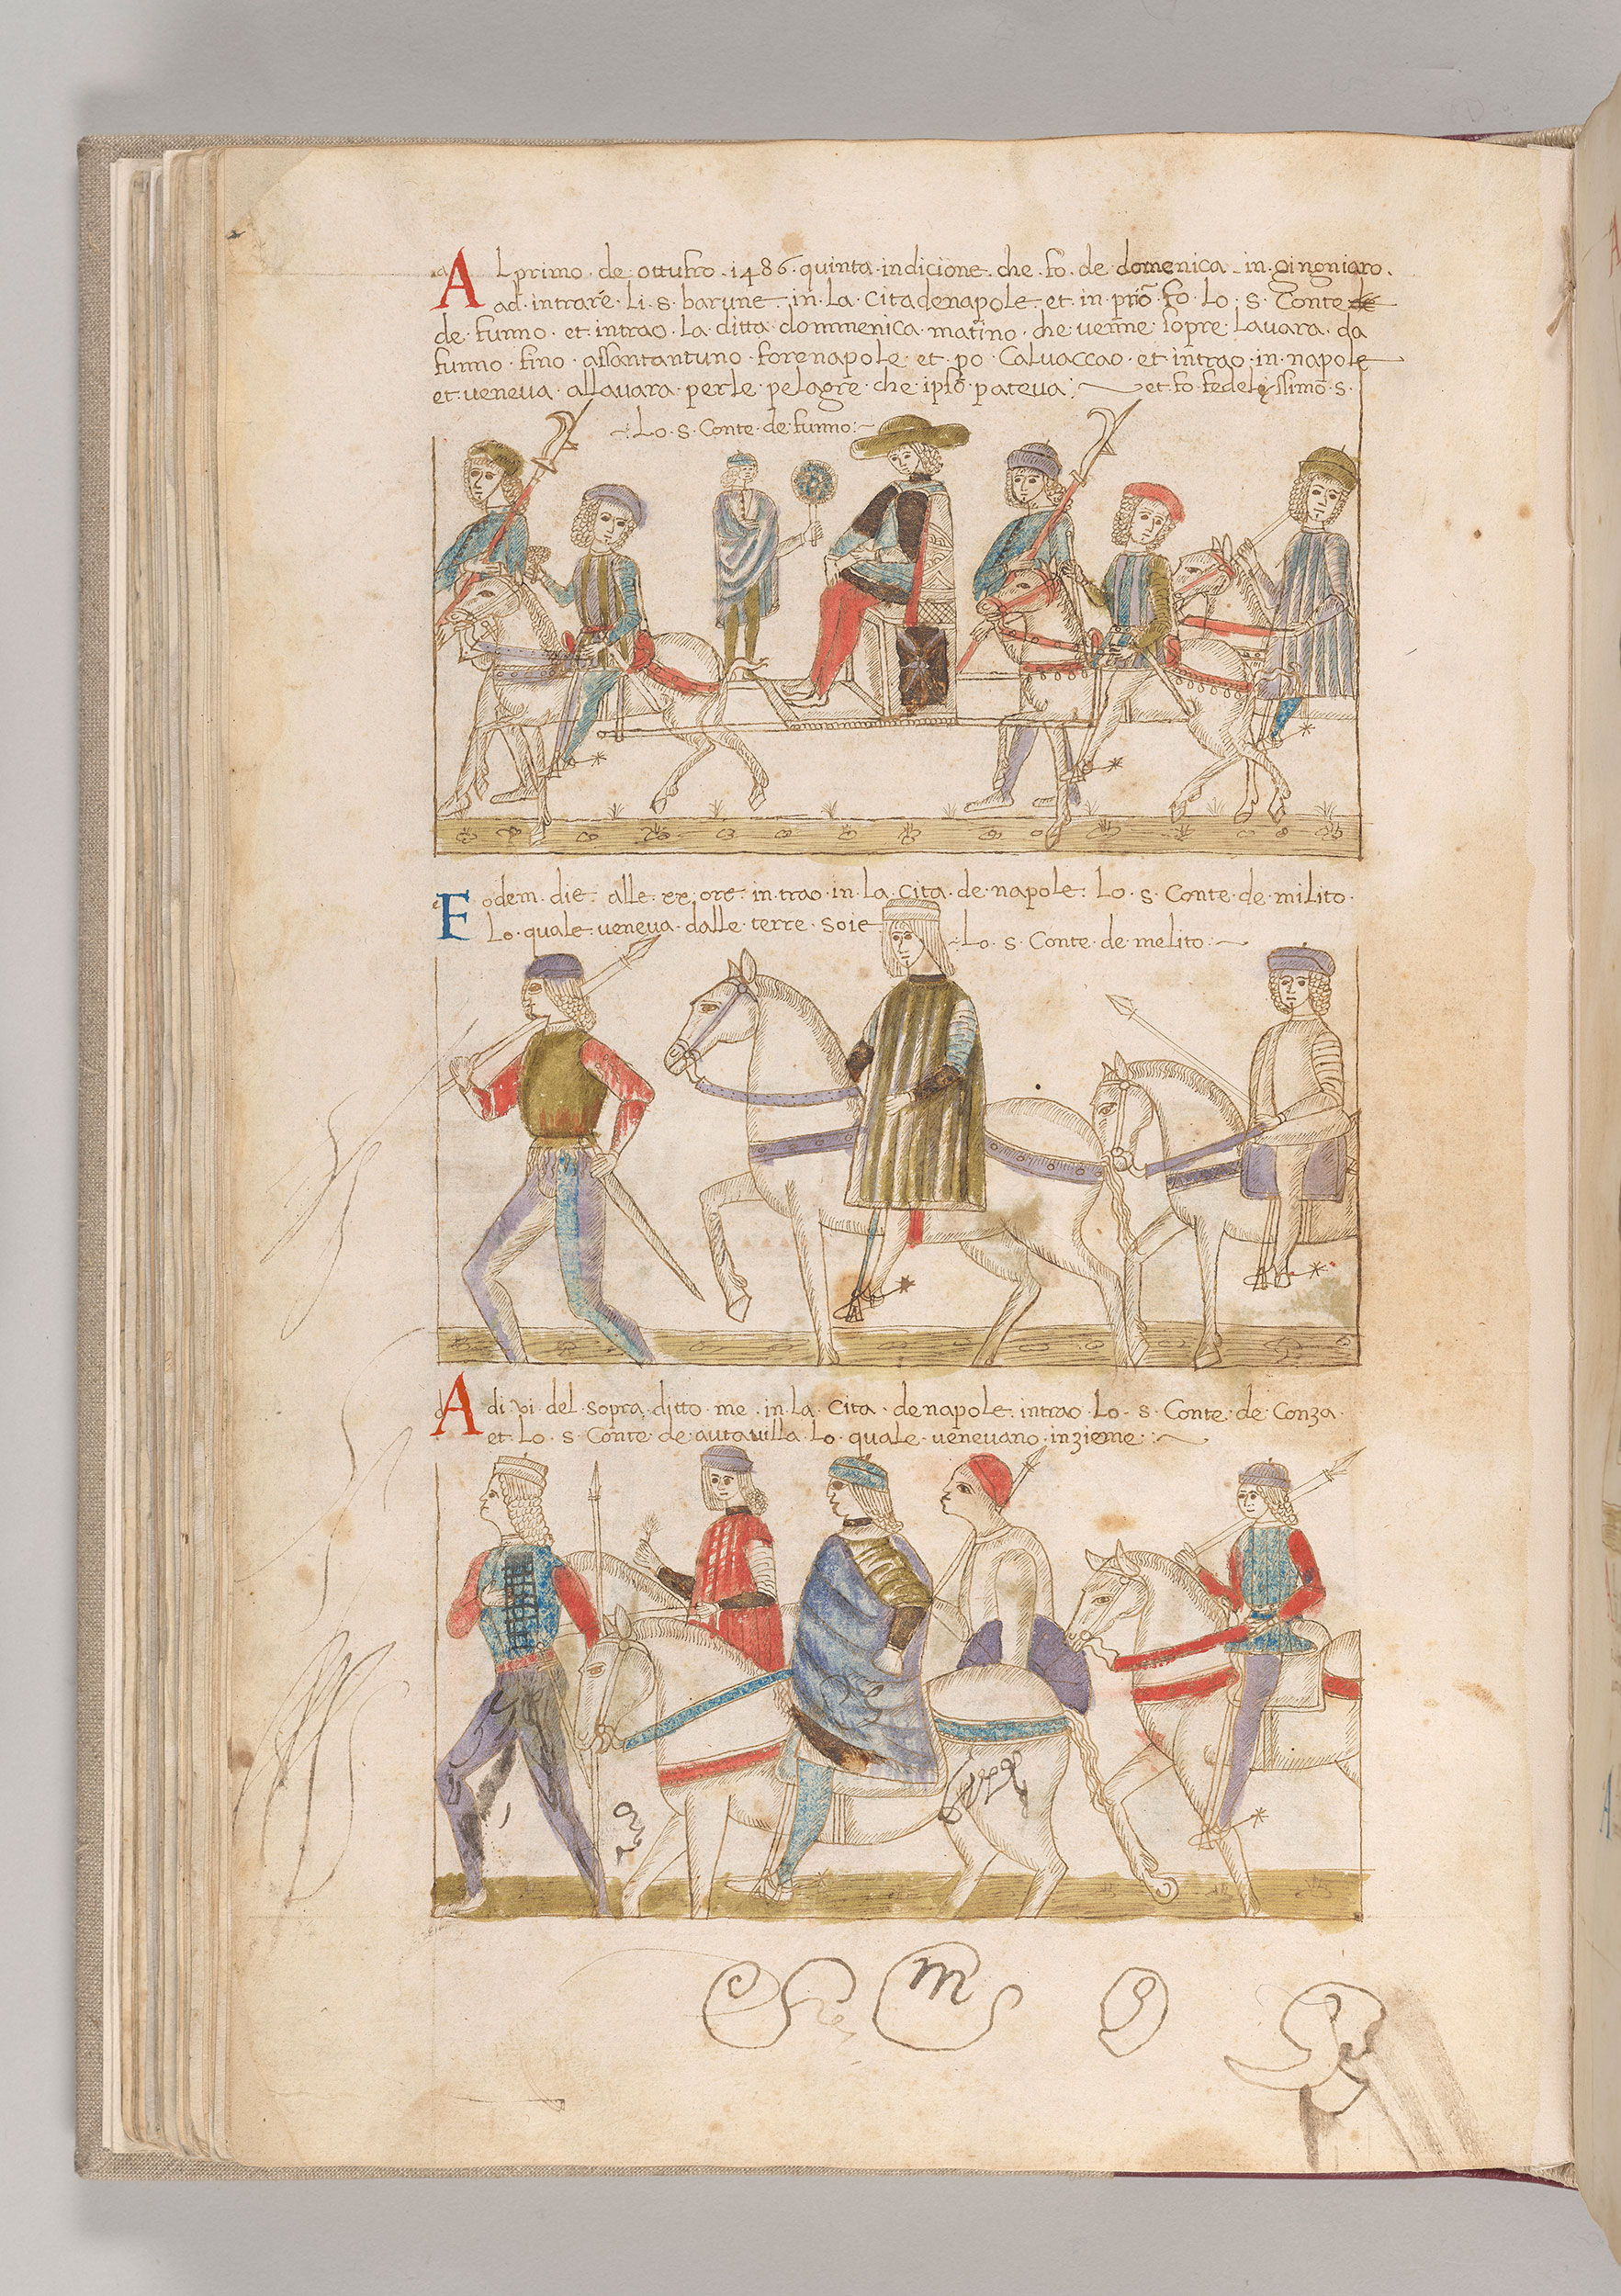 Al primo · de ottufro · 1486 · quinta · indicione · che · fo · de domenica · in ·
ad · intrare · li · s · barune · in · la · Citadenapole · et · in · prio · fo · lo · s · Conte de
de · funno · et · intrao · la · ditta · dommenica · matino · che · venne · sopre · lavara · da
funno · fino · assantantuno · forenapole · et · po · Calvaccao · et · intrao · in · napole
et · veneva · allavara · per le · pelagre · che · ipso · pateva : et · fo · fedelissimo · s ·
Lo · s · Conte · de funno :
Eodem · die : alle · xx · ore : intrao · in · la · Cita · de · napole : Lo · s · Conte · de · milito ·
Lo · quale · veneva · dalle · terre · soie
Lo · s · Conte · de melito :
Adi · vi · del · sopra · ditto · me · in · la · Cita · denapole · intrao · Lo · s · Conte · de · Conza ·
et · Lo · s · Conte · de · autavilla · lo · quale · venevano · inzieme :